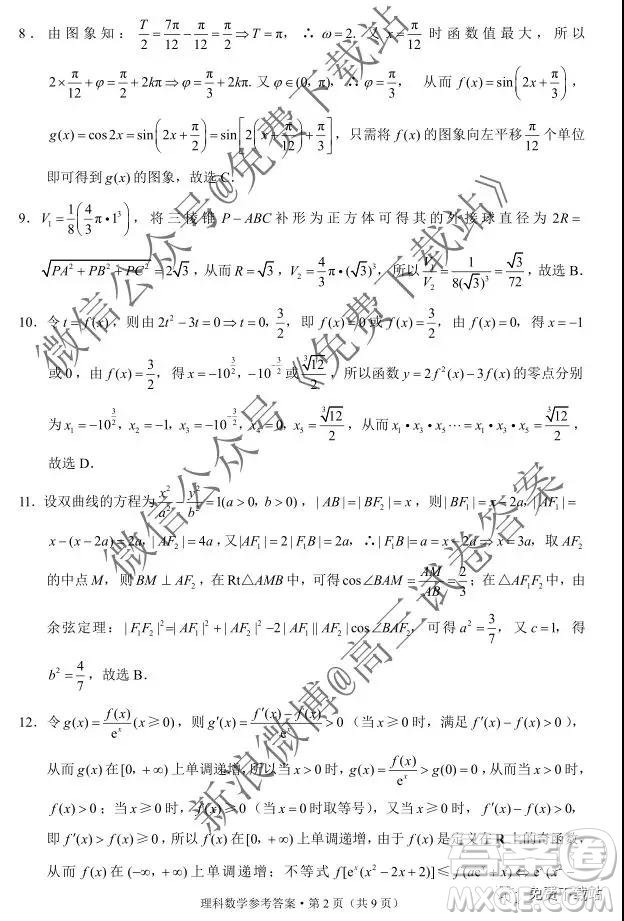 8．由图象知：T/2 = 7π/12 − π/12 = π/2 ⇒ T = π，∴ ω = 2. 又 x = π/12 时函数值最大，所以
2×π/12 + φ = π/2 + 2kπ ⇒ φ = π/3 + 2kπ. 又 φ∈(0，π)，∴ φ = π/3， 从而 f(x) = sin(2x + π/3)，
g(x) = cos2x = sin(2x + π/2) = sin[2(x + π/12) + π/3]，只需将 f(x) 的图象向左平移 π/12 个单位
即可得到 g(x) 的图象，故选 C．
9．V₁ = 1/8(4/3 π•1³)，将三棱锥 P−ABC 补形为正方体可得其的外接球直径为 2R =
√(PA² + PB² + PC²) = 2√3，从而 R = √3，V₂ = 4/3 π•(√3)³，所以 V₁/V₂ = 1/(8(√3)³) = √3/72，故选 B．
10．令 t = f(x)，则由 2t² − 3t = 0 ⇒ t = 0，3/2，即 f(x) = 0 或 f(x) = 3/2，由 f(x) = 0，得 x = −1
或 0，由 f(x) = 3/2，得 x = −10^(3/2)，−10^(−3/2) 或 ∛12/2，所以函数 y = 2f²(x) − 3f(x) 的零点分别
为 x₁ = −10^(3/2)，x₂ = −1，x₃ = −10^(−3/2)，x₄ = 0，x₅ = ∛12/2，从而 x₁•x₃•x₅ = x₁•x₃•x₅ = ∛12/2，
故选 D．
11．设双曲线的方程为 x²/a² − y²/b² = 1(a > 0，b > 0)，|AB| = |BF₂| = x，则 |BF₁| = x − 2a，|AF₁| =
x − (x − 2a) = 2a，|AF₂| = 4a，又|AF₁| = 2|F₁B| = 2a，∴|F₁B| = a = x − 2a ⇒ x = 3a，取 AF₂
的中点 M，则 BM ⊥ AF₂，在 Rt△AMB 中，可得 cos∠BAM = AM/AB = 2/3；在 △AF₁F₂ 中，由
余弦定理：|F₁F₂|² = |AF₁|² + |AF₂|² − 2|AF₁||AF₂|cos∠BAF₂，可得 a² = 3/7，又 c = 1，得
b² = 4/7，故选 B．
12．令 g(x) = f(x)/eˣ (x ≥ 0)，则 g′(x) = (f′(x) − f(x))/eˣ > 0（当 x ≥ 0 时，满足 f′(x) − f(x) > 0），
从而 g(x) 在 [0，+∞) 上单调递增，所以当 x > 0 时，g(x) = f(x)/eˣ > g(0) = 0，从而当 x > 0 时，
f(x) > 0；当 x ≥ 0 时，f(x) ≥ 0（当 x = 0 时取等号），又当 x ≥ 0 时，f′(x) − f(x) > 0，
即 f′(x) > f(x) ≥ 0，所以 f(x) 在 [0，+∞) 上单调递增，由于 f(x) 是定义在 R 上的奇函数，
从而 f(x) 在 (−∞，+∞) 上单调递增；不等式 f[eˣ(x² − 2x + 2)] ≤ f(aeˣ + x) ⇔ eˣ(x² −
理科数学参考答案·第 2 页（共 9 页）
微信公众号@免费下载站
微信公众号《免费下载站》
新浪微博@高三试卷答案
免费下载站